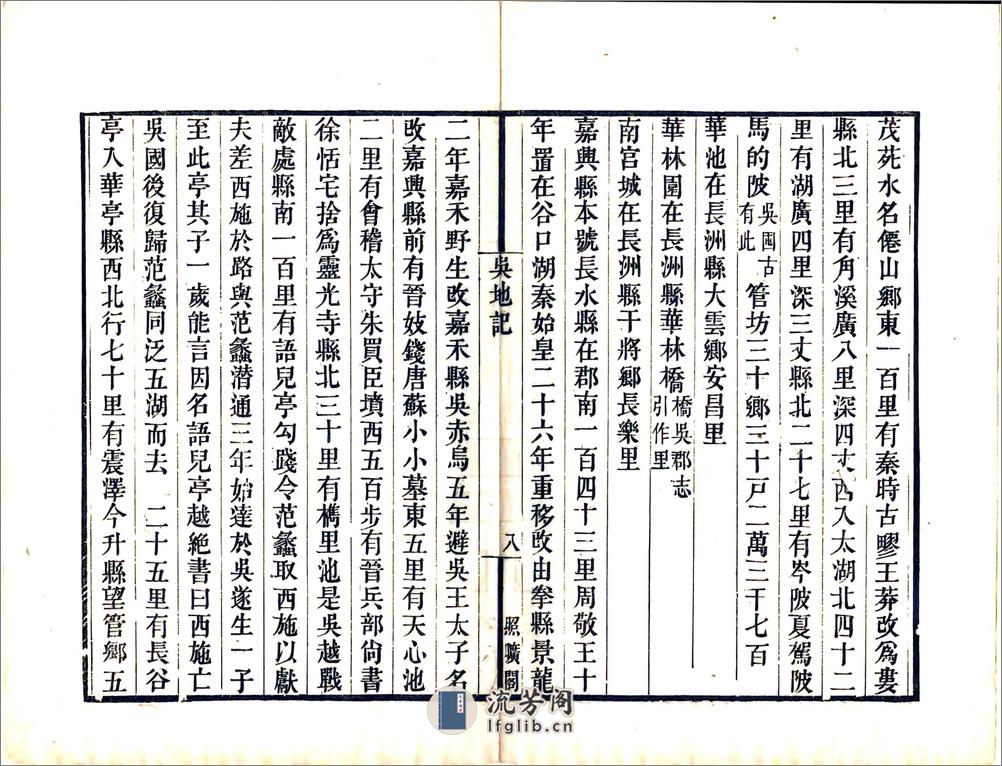 茂苑水名僊山鄉東一百里有秦時古疁王莽改爲婁
縣北三里有角溪廣八里深四丈西入太湖北四十二
里有湖廣四里深三丈縣北二十七里有岑陂夏駕陂
馬的陂吳國古有此 管坊三十鄉三十戸二萬三千七百
華池在長洲縣大雲鄉安昌里
華林園在長洲縣華林橋橋吳郡志引作里
南宮城在長洲縣干將鄉長樂里
嘉興縣本號長水縣在郡南一百四十三里周敬王十
年置在谷口湖秦始皇二十六年重移改由拳縣景龍
吳地記
八
照曠閣
二年嘉禾野生改嘉禾縣吳赤烏五年避吳王太子名
改嘉興縣前有晉妓錢唐蘇小小墓東五里有天心池
二里有會稽太守朱買臣墳西五百步有晉兵部尙書
徐恬宅捨爲靈光寺縣北三十里有檇里池是吳越戰
敵處縣南一百里有語兒亭勾踐令范蠡取西施以獻
夫差西施於路與范蠡潛通三年始達於吳遂生一子
至此亭其子一歲能言因名語兒亭越絶書曰西施亡
吳國後復歸范蠡同泛五湖而去 二十五里有長谷
亭入華亭縣西北行七十里有震澤今升縣望管鄉五
流芳阁
lfglib.cn